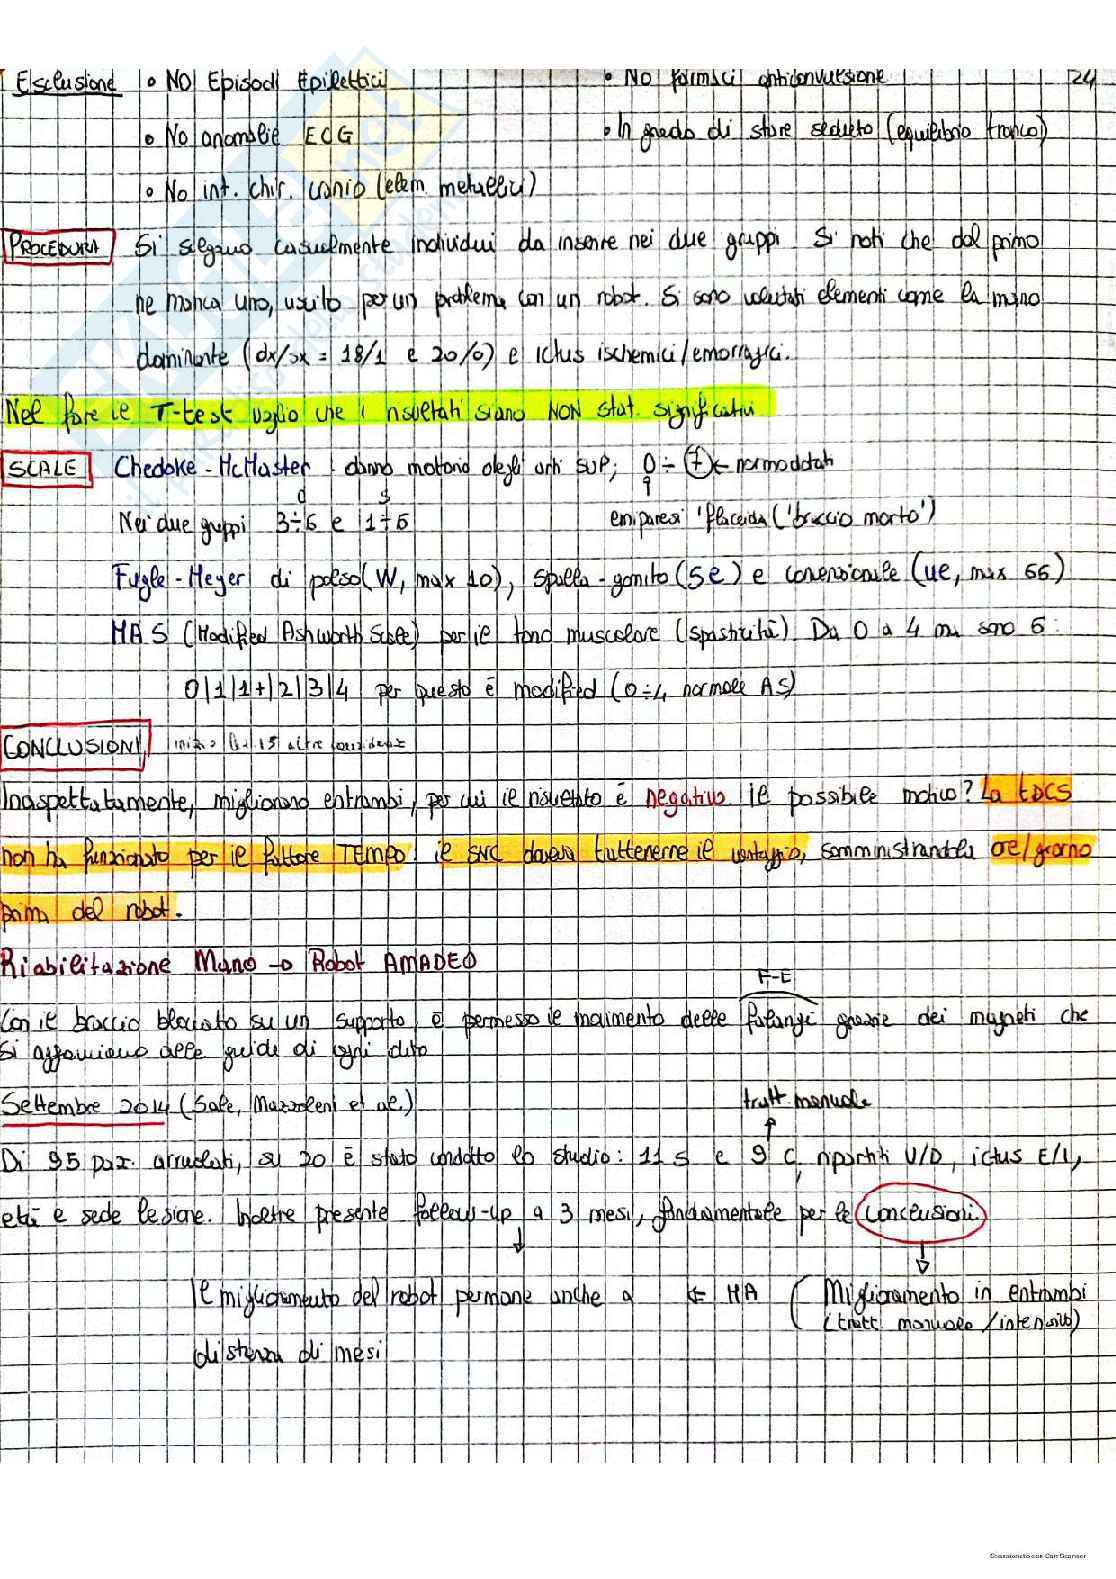 Esclusione • NO Episodi Epilettici • No farmaci anticonvulsione 24
• No anomalie ECG • In grado di stare seduto (equilibrio tronco)
• No int. chir. cranio (elem. metallici)
PROCEDURA Si scelgono casualmente individui da inserire nei due gruppi. Si noti che dal primo
ne manca uno, uscito per un problema con un robot. Si sono valutati elementi come la mano
dominante (dx/sx = 18/1 e 20/0) e ictus ischemici/emorragici.
Nel fare il T-test voglio che i risultati siano NON stat. significativi
SCALE Chedoke-McMaster: danno motorio degli arti SUP; 0 ÷ 7 ← normodotati
d s
Nei due gruppi 3÷6 e 1÷6 emiparesi 'flaccida ('braccio morto')
Fugle-Meyer di polso (W, max 10), spalla-gomito (se) e (ue, max 66)
MAS (Modified Ashworth Scale) per il tono muscolare (spasticità). Da 0 a 4 ma sono 6:
0|1|1+|2|3|4 per questo è modified (0÷4 normale AS)
CONCLUSIONI
Inaspettatamente, migliorano entrambi, per cui il risultato è negativo il possibile motivo? La tDCS
non ha funzionato per il fattore TEMPO: il SNC doveva trattenerne il vantaggio, somministrandola ore/giorno
prima del robot.
Riabilitazione Mano → Robot AMADEO
F-E
Con il braccio bloccato su un supporto, è permesso il movimento delle falangi grazie dei magneti che
si agganciano alle guide di ogni dito
Settembre 2014 (Sale, Mazzoleni et al.)
tratt. manuale
Di 95 paz. arruolati, su 20 è stato condotto lo studio: 11 S e 9 C, ripartiti U/D, ictus E/I,
età e sede lesione. Inoltre presente follow-up a 3 mesi, fondamentale per le conclusioni
Il miglioramento del robot permane anche a ← MA (Miglioramento in entrambi
(tratt. manuale/intensivo)
distanza di mesi
Scansionato con CamScanner